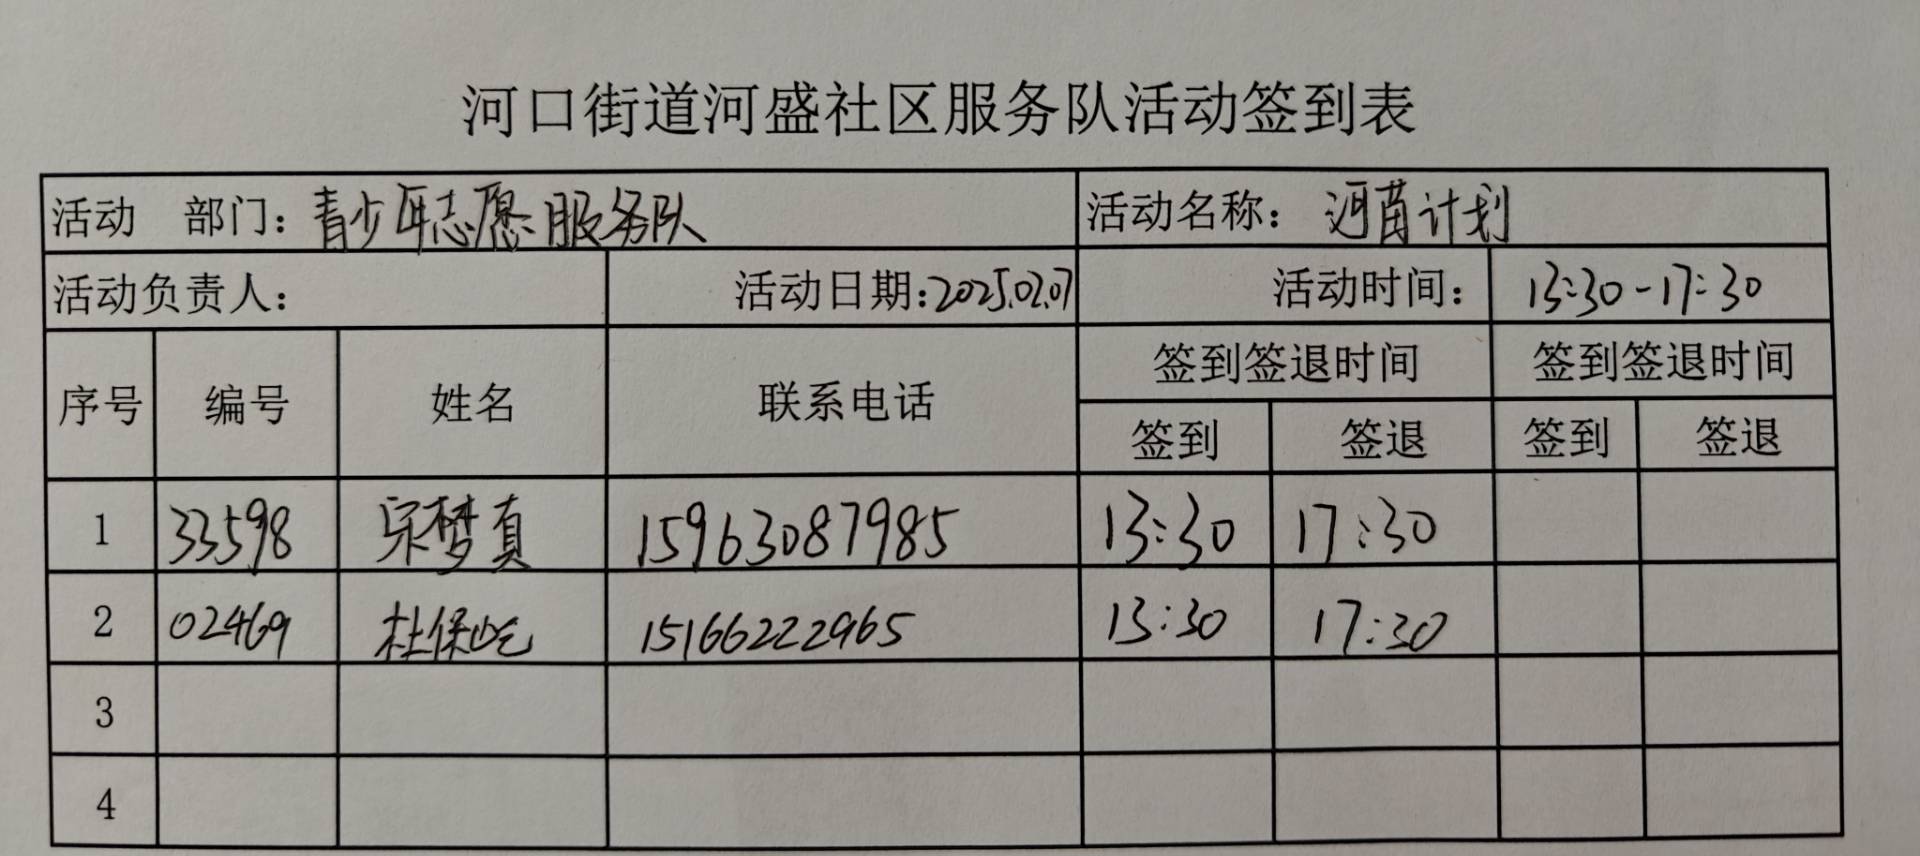 河口街道河盛社区服务队活动签到表
活动 部门：青少年志愿服务队 活动名称：河苗计划
活动负责人： 活动日期：2025.02.07 活动时间： 13:30-17:30
序号 编号 姓名 联系电话 签到签退时间 签到签退时间
签到 签退 签到 签退
1 33598 宋梦真 15963087985 13:30 17:30
2 02469 杜保屹 15166222965 13:30 17:30
3
4